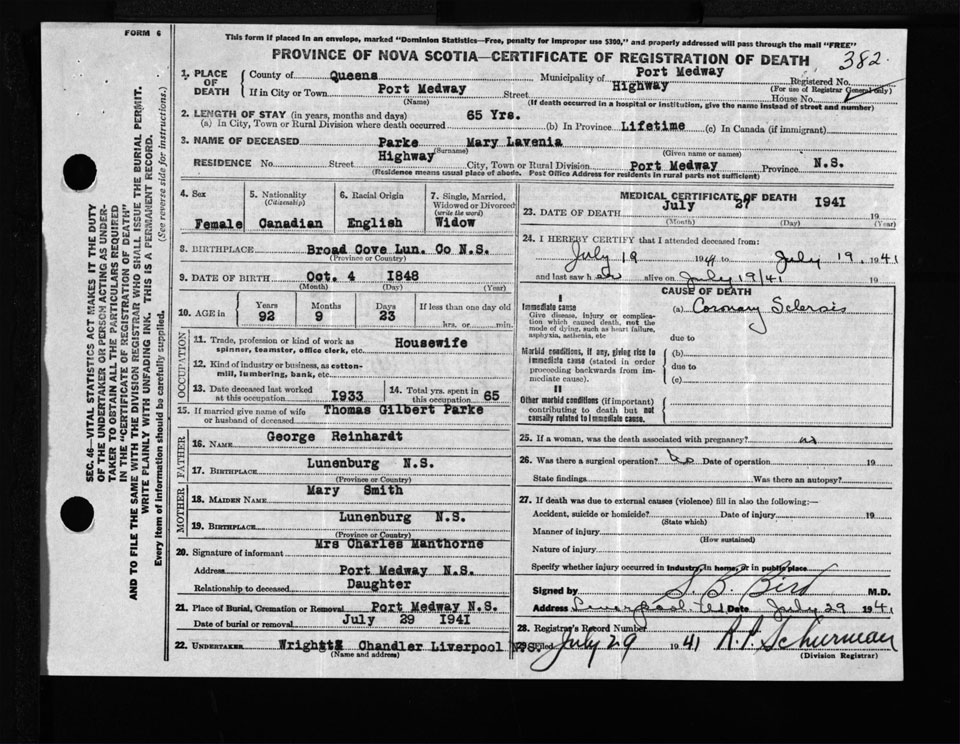 FORM 6
This form if placed in an envelope, marked "Dominion Statistics—Free, penalty for improper use $300," and properly addressed will pass through the mail "FREE"
PROVINCE OF NOVA SCOTIA—CERTIFICATE OF REGISTRATION OF DEATH
382
SEC. 46—VITAL STATISTICS ACT MAKES IT THE DUTY
OF THE UNDERTAKER OR PERSON ACTING AS UNDER-
TAKER TO OBTAIN ALL THE PARTICULARS REQUIRED
IN THE "CERTIFICATE OF REGISTRATION OF DEATH"
AND TO FILE THE SAME WITH THE DIVISION REGISTRAR WHO SHALL ISSUE THE BURIAL PERMIT.
WRITE PLAINLY WITH UNFADING INK. THIS IS A PERMANENT RECORD.
Every item of information should be carefully supplied. (See reverse side for instructions.)
1. PLACE OF DEATH
County of Queens Municipality of Port Medway Registered No.
(For use of Registrar General only)
If in City or Town Port Medway Street Highway House No.
(Name) (If death occurred in a hospital or institution, give the name instead of street and number)
2. LENGTH OF STAY (in years, months and days)
(a) In City, Town or Rural Division where death occurred 65 Yrs. (b) In Province Lifetime (c) In Canada (if immigrant)
3. NAME OF DECEASED Parke Mary Lavenia
(Surname) (Given name or names)
RESIDENCE No. Street Highway City, Town or Rural Division Port Medway Province N.S.
(Residence means usual place of abode. Post Office Address for residents in rural parts not sufficient)
4. Sex Female
5. Nationality (Citizenship) Canadian
6. Racial Origin English
7. Single, Married, Widowed or Divorced (write the word) Widow
8. BIRTHPLACE Broad Cove Lun. Co N.S.
(Province or Country)
9. DATE OF BIRTH Oct. 4 1848
(Month) (Day) (Year)
10. AGE in Years 92 Months 9 Days 23 If less than one day old hrs. or min.
OCCUPATION
11. Trade, profession or kind of work as spinner, teamster, office clerk, etc. Housewife
12. Kind of industry or business, as cotton-mill, lumbering, bank, etc.
13. Date deceased last worked at this occupation 1933
14. Total yrs. spent in this occupation 65
15. If married give name of wife or husband of deceased Thomas Gilbert Parke
FATHER
16. NAME George Reinhardt
17. BIRTHPLACE Lunenburg N.S.
(Province or Country)
MOTHER
18. MAIDEN NAME Mary Smith
19. BIRTHPLACE Lunenburg N.S.
(Province or Country)
20. Signature of informant Mrs Charles Manthorne
Address Port Medway N.S.
Relationship to deceased Daughter
21. Place of Burial, Cremation or Removal Port Medway N.S.
Date of burial or removal July 29 1941
22. UNDERTAKER Wright & Chandler Liverpool N.S.
(Name and address)
MEDICAL CERTIFICATE OF DEATH
23. DATE OF DEATH July 27 1941 19
(Month) (Day) (Year)
24. I HEREBY CERTIFY that I attended deceased from:
July 19 19 to July 19. 1941
and last saw h er alive on July 19/41 19
CAUSE OF DEATH
Immediate cause
Give disease, injury or complication which caused death, not the mode of dying, such as heart failure, asphyxia, asthenia, etc
(a) Coronary Sclerosis
due to
Morbid conditions, if any, giving rise to immediate cause (stated in order proceeding backwards from immediate cause).
(b)
due to
(c)
Other morbid conditions (if important) contributing to death but not causally related to immediate cause.
25. If a woman, was the death associated with pregnancy? no
26. Was there a surgical operation? No Date of operation 19
State findings Was there an autopsy?
27. If death was due to external causes (violence) fill in also the following:—
Accident, suicide or homicide? Date of injury 19
(State which)
Manner of injury
(How sustained)
Nature of injury
Specify whether injury occurred in industry, in home, or in public place
Signed by S. B. Bird M.D.
Address Liverpool Date July 29 1941
28. Registrar's Record Number
Filed July 29 1941 R.P. Schurman
(Division Registrar)